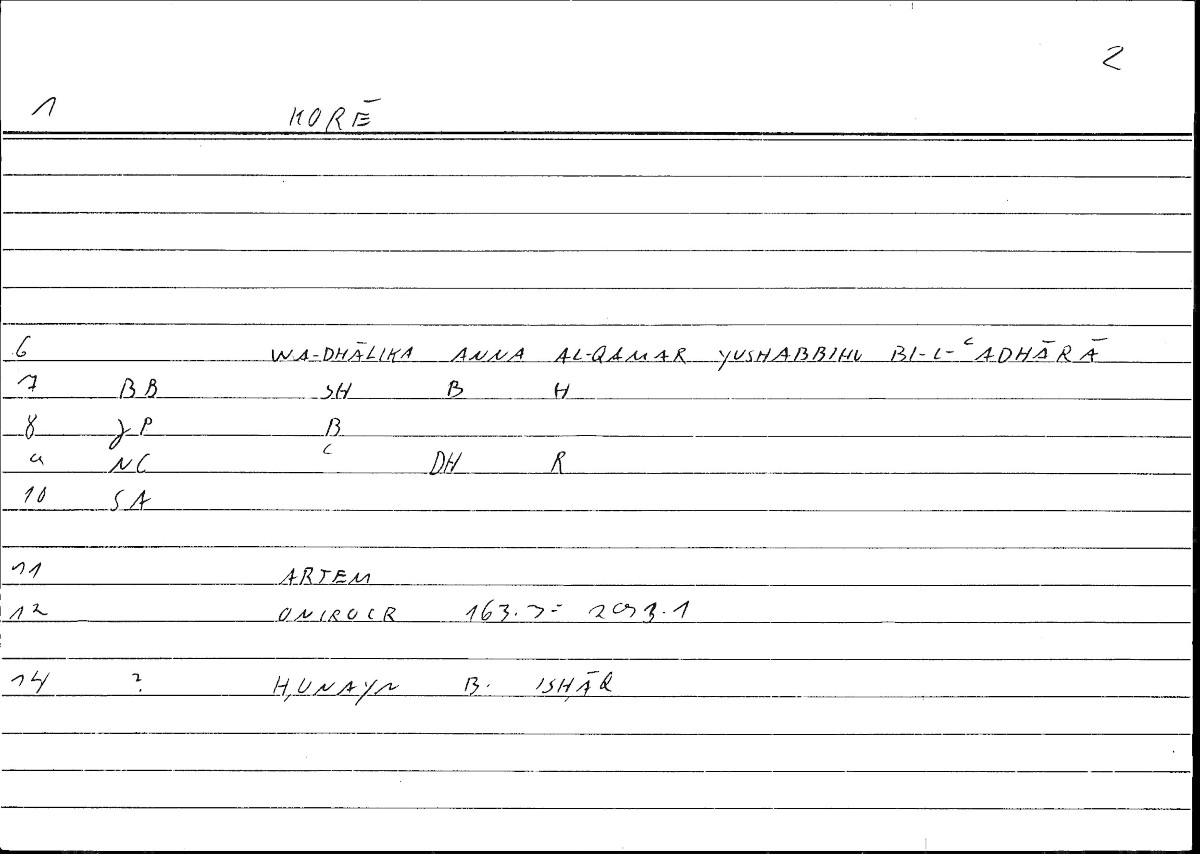 2
1 KORĒ
6 WA-DHĀLIKA ANNA AL-QAMAR YUSHABBIHU BI-L-ʿADHĀRĀ
7 BB SH B H
8 γP B
9 NC ʿ DH R
10 SA
11 ARTEM
12 ONIROCR 163.7 = 293.1
14 ? ḤUNAYN B. ISḤĀQ